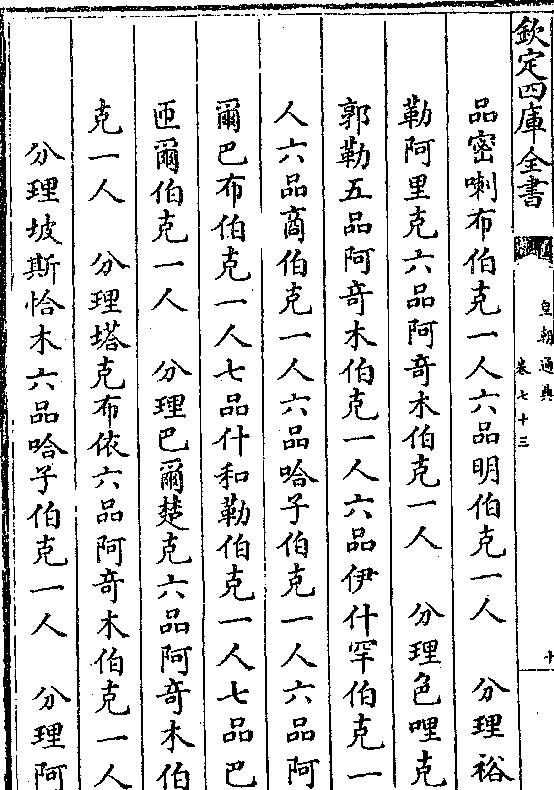 欽定四庫全書
皇朝通典
卷七十三
十
品密喇布伯克一人六品明伯克一人　分理裕
勒阿里克六品阿奇木伯克一人　分理色哩克
郭勒五品阿奇木伯克一人六品伊什罕伯克一
人六品商伯克一人六品哈子伯克一人六品阿
爾巴布伯克一人七品什和勒伯克一人七品巴
匝爾伯克一人　分理巴爾楚克六品阿奇木伯
克一人　分理塔克布依六品阿奇木伯克一人
分理坡斯恰木六品哈子伯克一人　分理阿